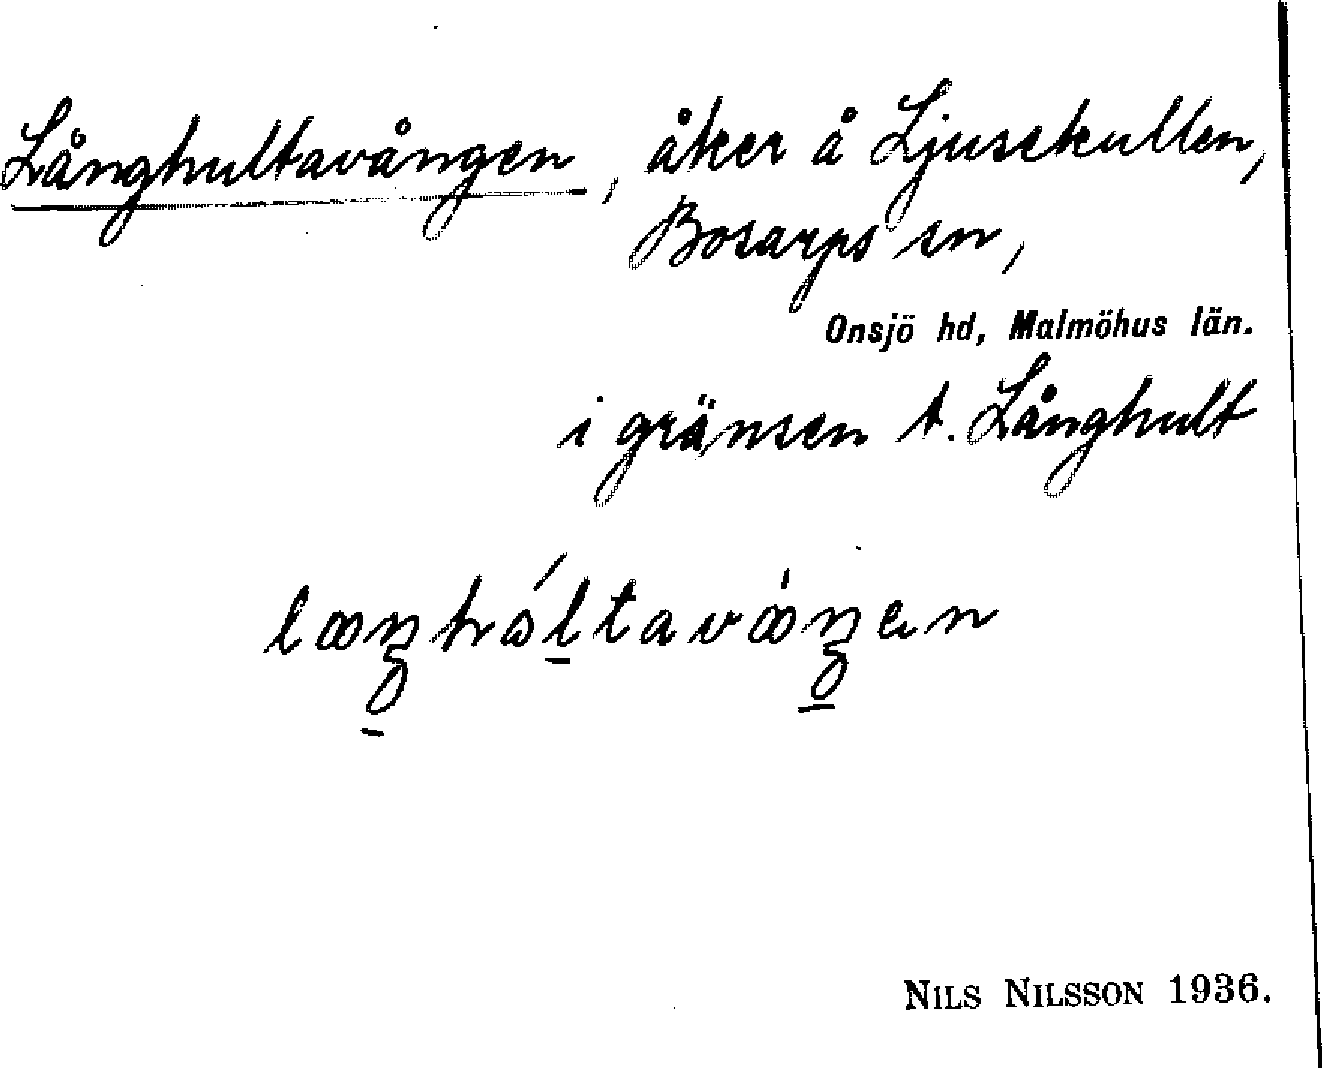 Långhultavången, åker å Ljusekullen,
Bosarps sn,
Onsjö hd, Malmöhus län.
i gränsen t. Långhult
NILS NILSSON 1936.